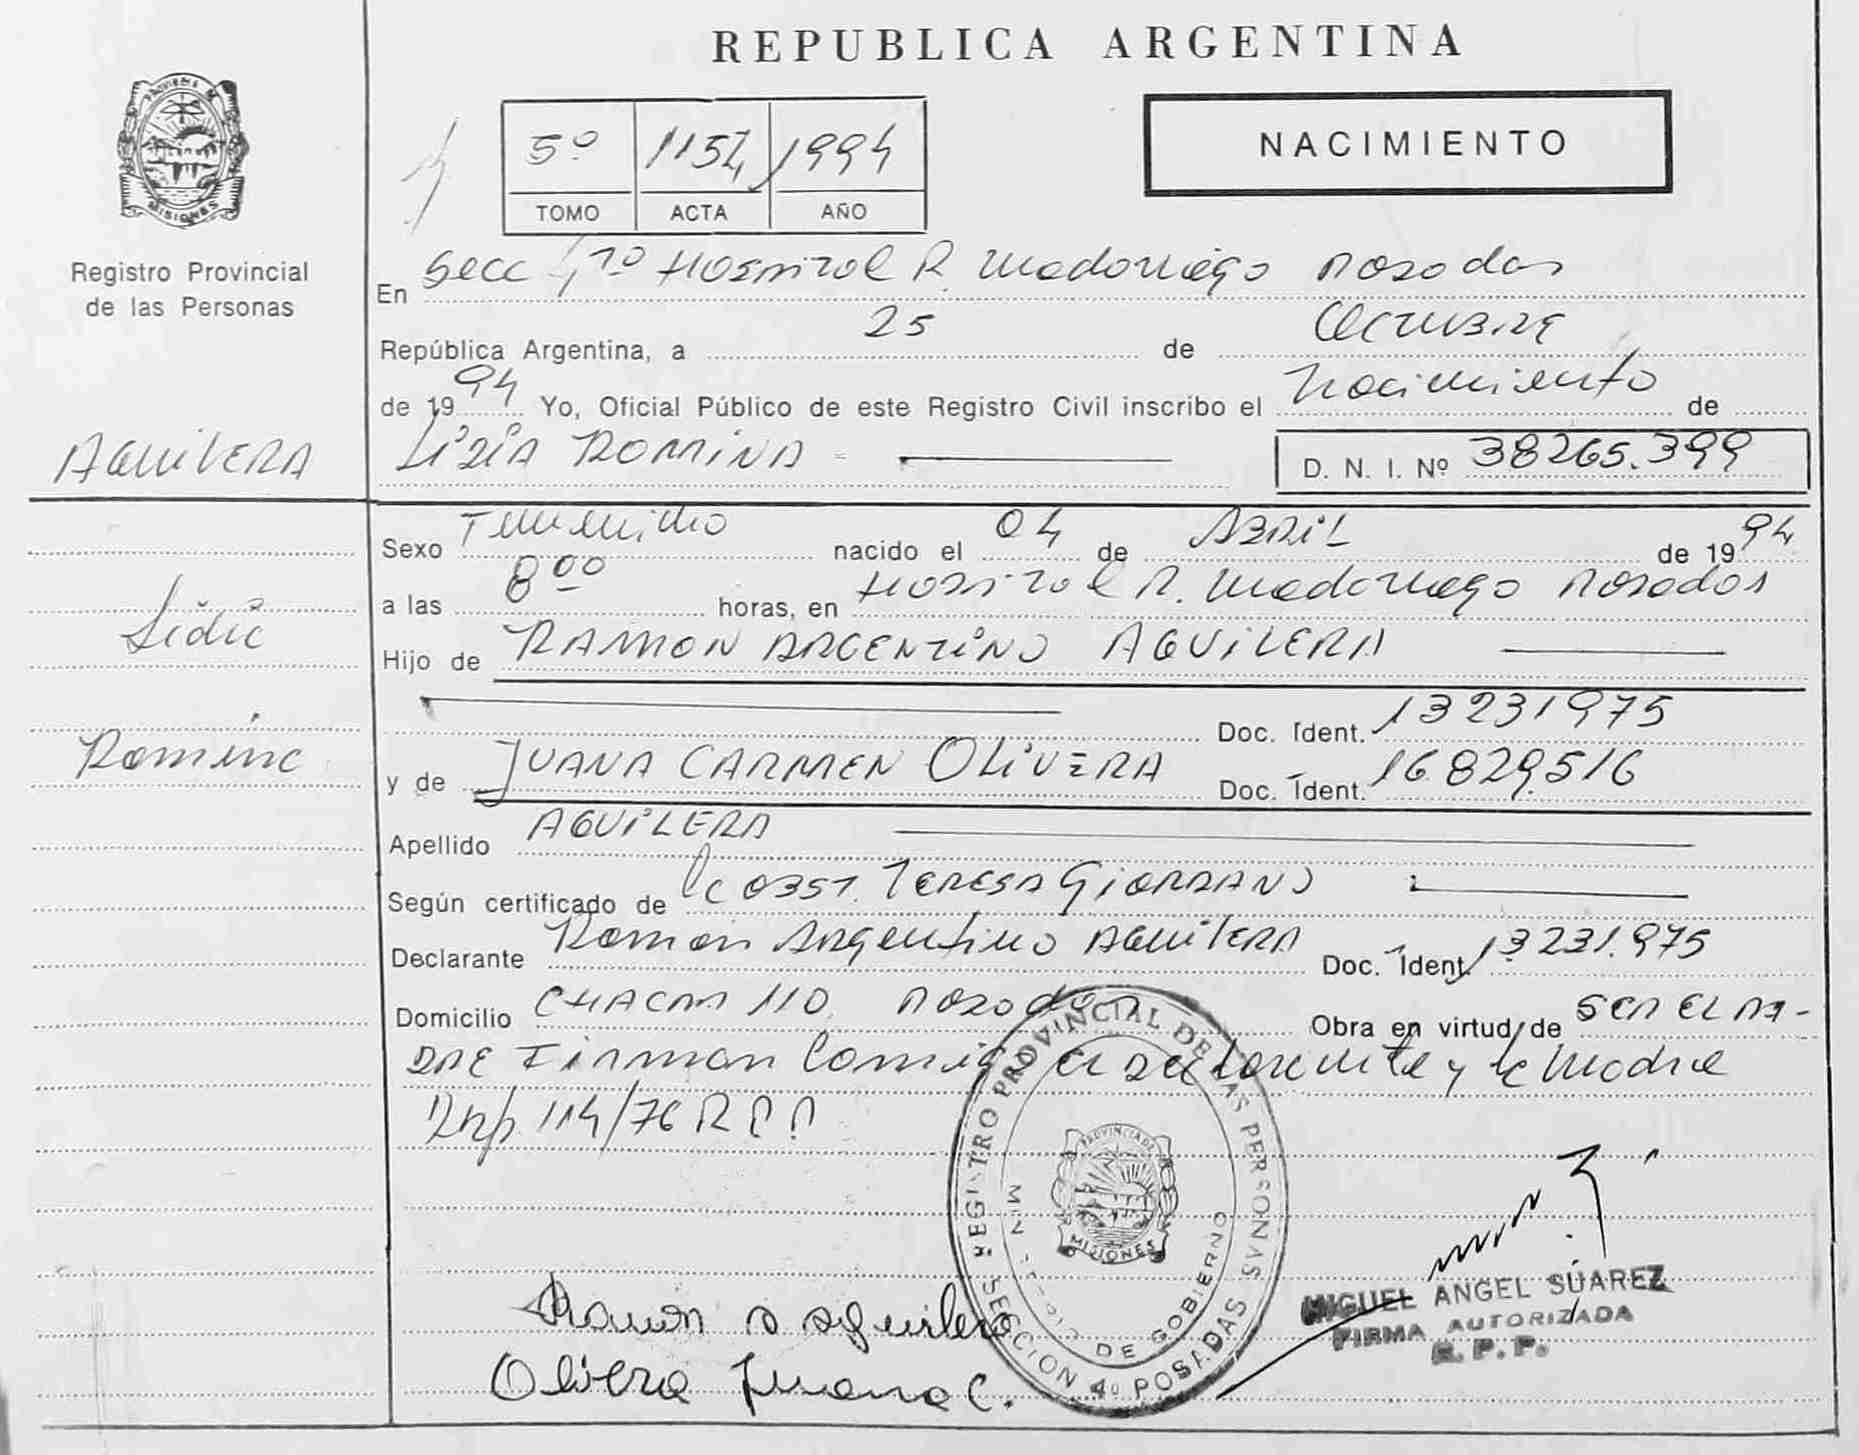 REPUBLICA ARGENTINA
PROVINCIA DE MISIONES
Registro Provincial
de las Personas
5º 1154 1994
TOMO ACTA AÑO
NACIMIENTO
En Secc 4ta Hospital R. Madariaga Posadas
República Argentina, a 25 de Octubre
de 1994 Yo, Oficial Público de este Registro Civil inscribo el Nacimiento de
AGUILERA
LiDiA ROMiNA
D. N. I. Nº 38265.399
Sexo Femenino nacido el 04 de ABRiL de 1994
a las 8ºº horas, en Hospital R. Madariaga Posadas
Lidia
Hijo de RAMON ARGENTiNO AGUiLERA
Doc. Ident. 13231975
Romina
y de JUANA CARMEN OLiVERA Doc. Ident. 16.829.516
Apellido AGUiLERA
Según certificado de Obst. TERESA GiORDANO
Declarante Ramon Argentino AGUiLERA Doc. Ident. 13231.975
Domicilio CHACRA 110 Posadas Obra en virtud de SER EL PA-
DRE Firman Conmigo el Declarante y la Madre
Disp. 114/76 R.P.P.
REGISTRO PROVINCIAL DE LAS PERSONAS
SECCION 4º POSADAS
MINISTERIO DE GOBIERNO
PROVINCIA DE MISIONES
MIGUEL ANGEL SUAREZ
FIRMA AUTORIZADA
R. P. P.
Ramon A Aguilera
Olivera Juana C.